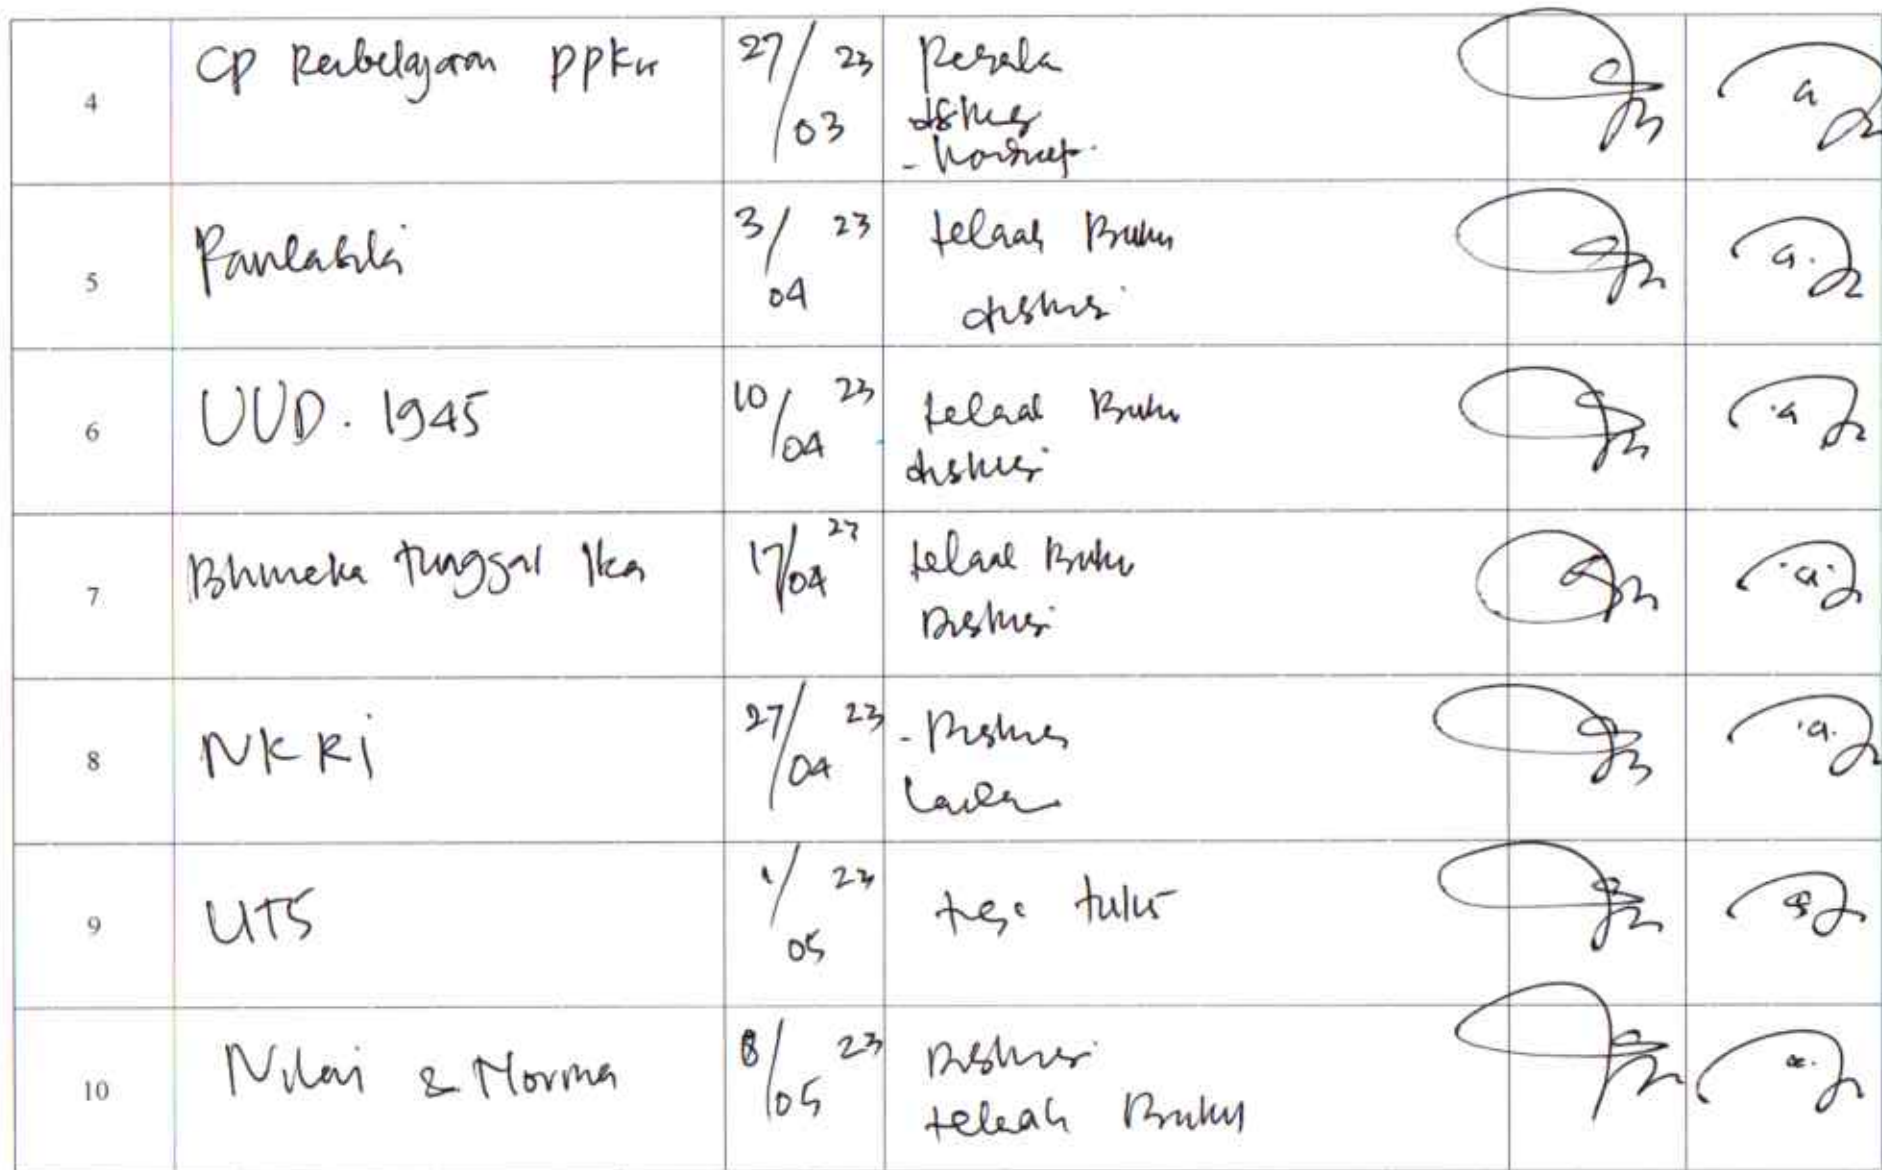 4
CP PPKn
27/03 23
diskusi
5
Pancasila
3/04 23
telaah Buku
diskusi
6
UUD. 1945
10/04 23
telaah Buku
diskusi
7
Bhineka tunggal Ika
17/04 23
telaah Buku
Diskusi
8
NKRI
27/04 23
- Diskusi
9
UTS
1/05 23
tes tulis
10
Nilai & Norma
8/05 23
Diskusi
telaah Buku